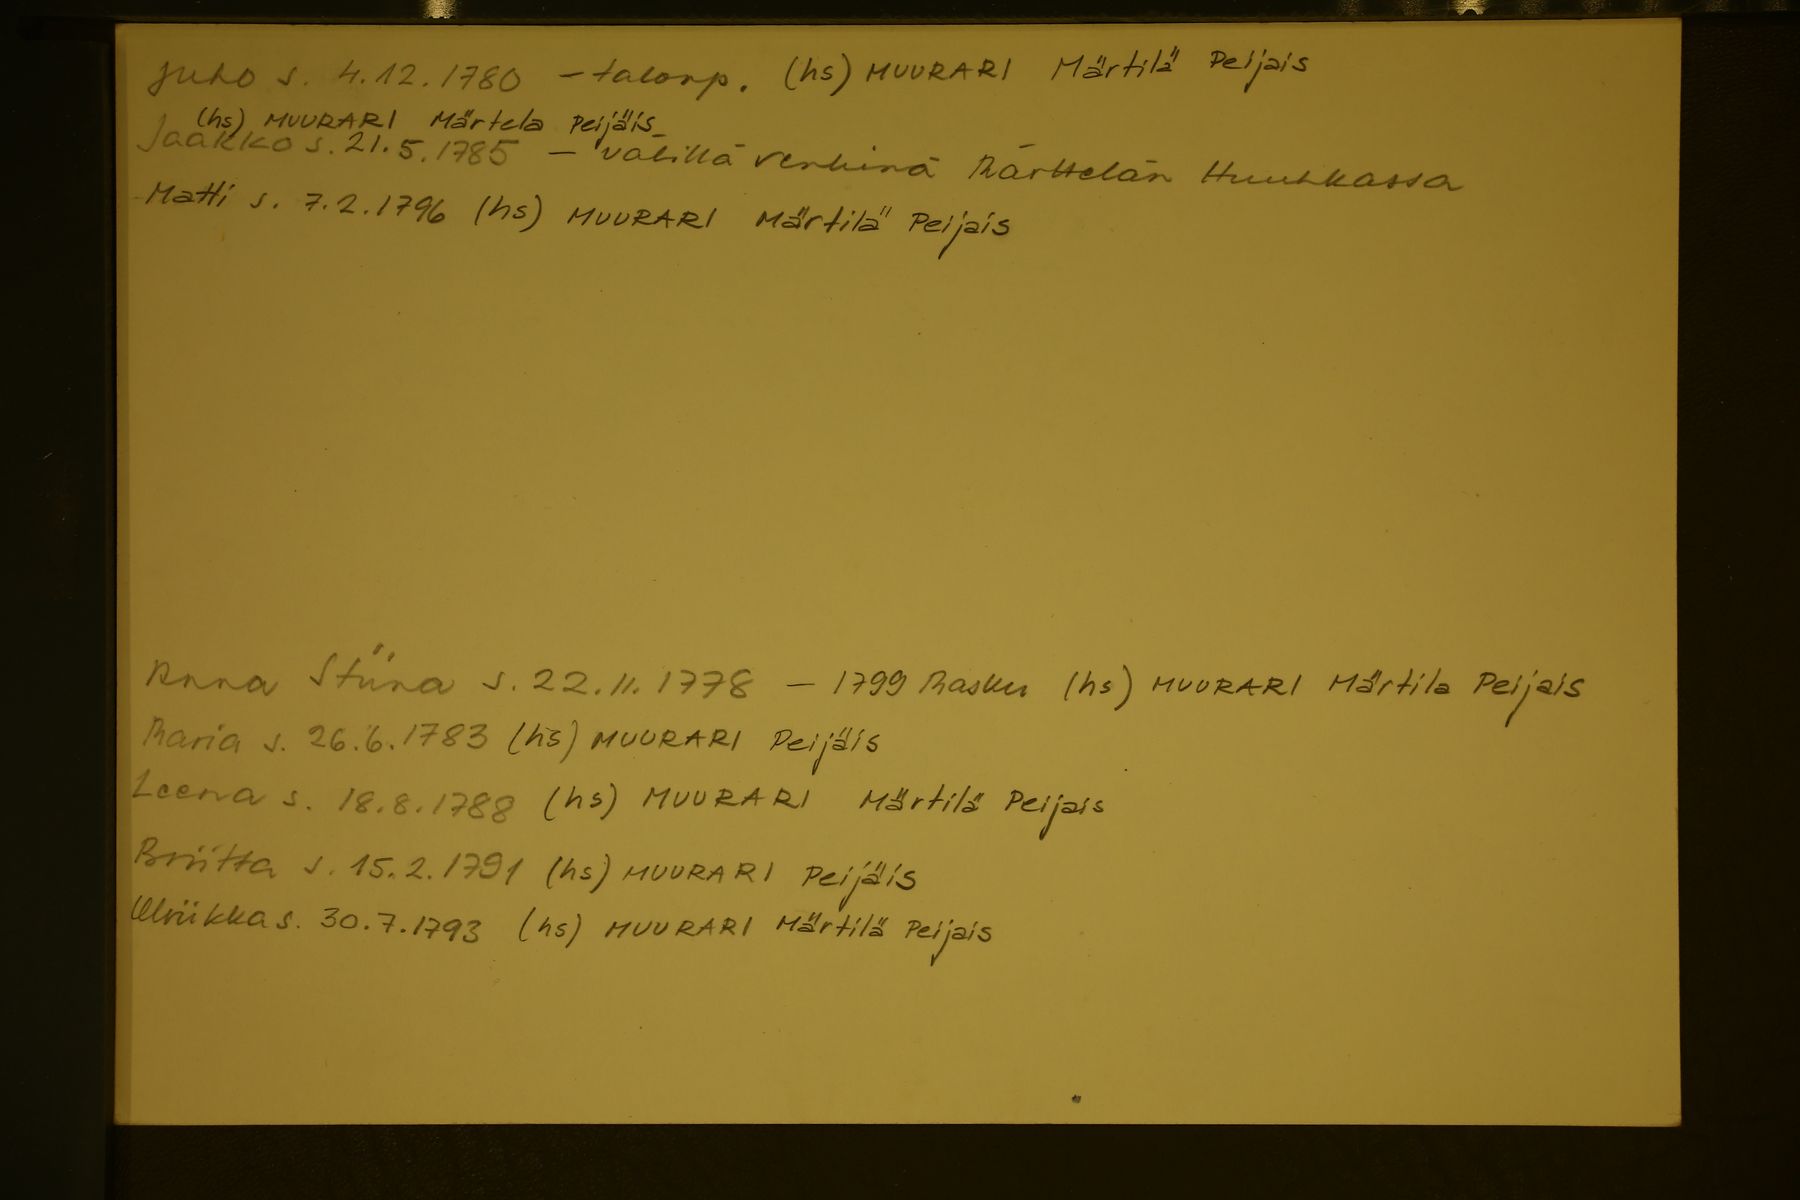 Juho s. 4.12.1780 – talonp. (hs) MUURARI Märtilä Peijais
(hs) MUURARI Märtela Peijäis
Jaakko s. 21.5.1785 – välillä renkinä Märttelän Huuhkassa
Matti s. 7.2.1796 (hs) MUURARI Märtilä Peijais
Anna Stiina s. 22.11.1778 – 1799 Masku (hs) MUURARI Märtila Peijais
Maria s. 26.6.1783 (hs) MUURARI Peijäis
Leena s. 18.8.1788 (hs) MUURARI Märtilä Peijais
Briitta s. 15.2.1791 (hs) MUURARI Peijäis
Ulriikka s. 30.7.1793 (hs) MUURARI Märtilä Peijais